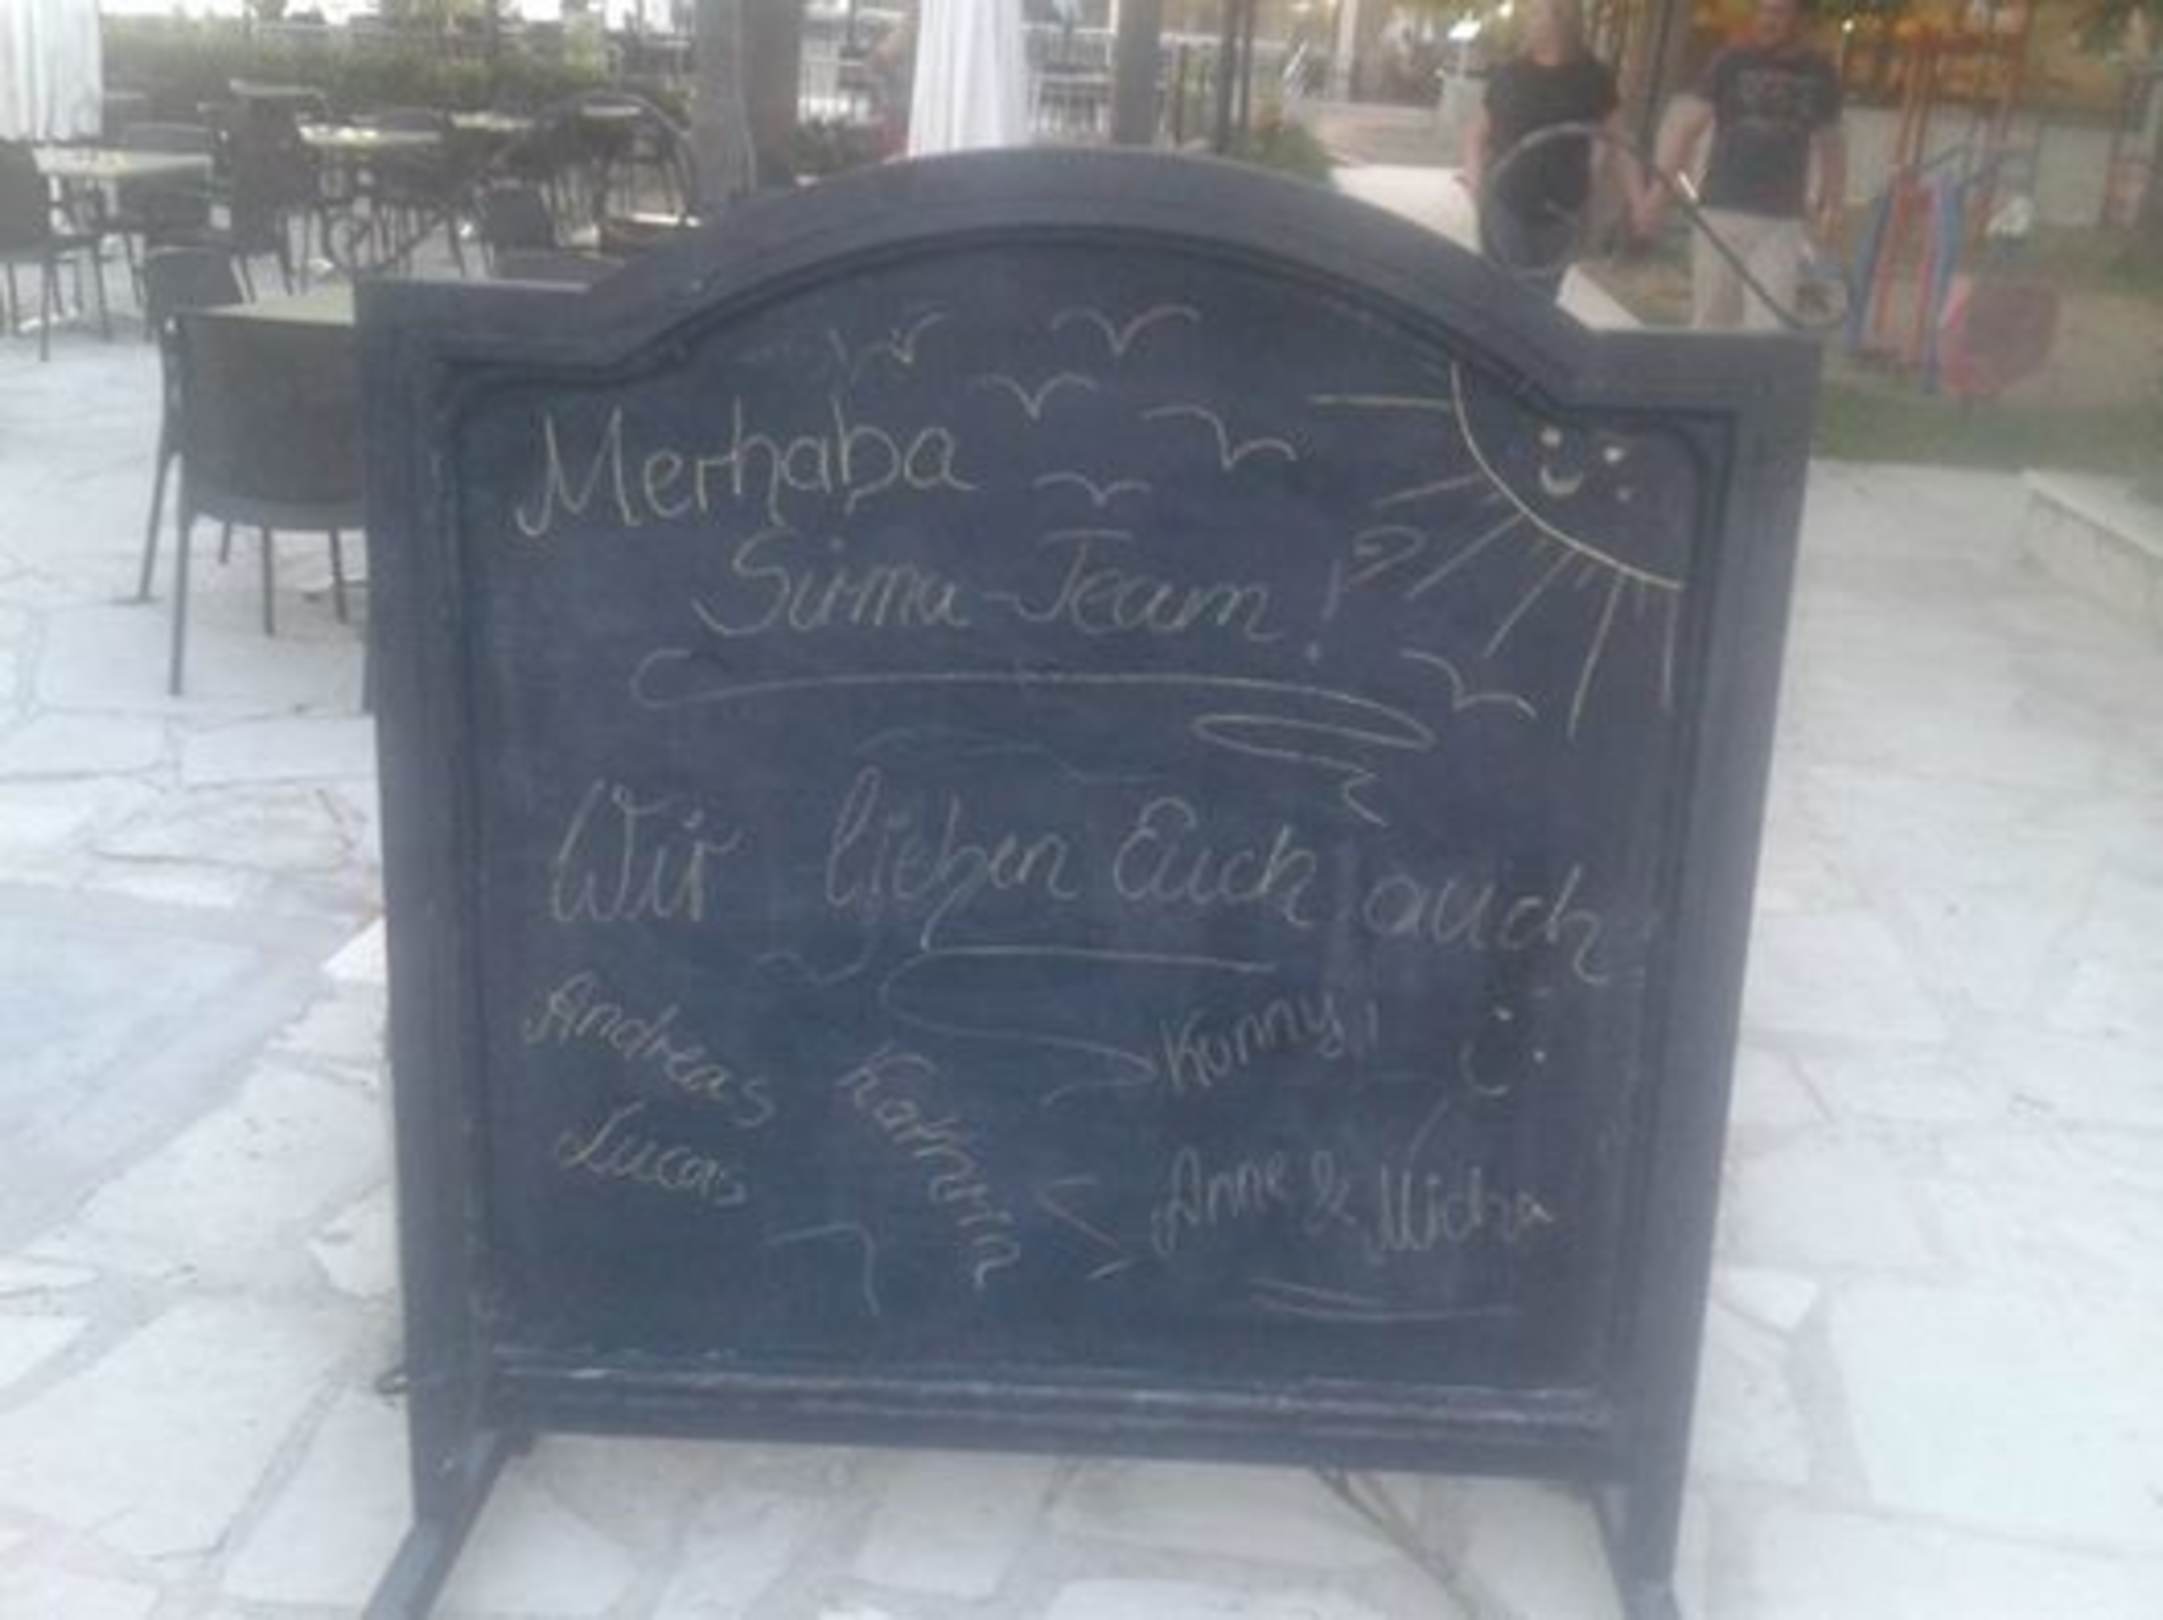 Merhaba
Sirma-Team!
Wir lieben Euch auch
Andreas
Lucas
Kathrin
Konny,
Anne & Micha